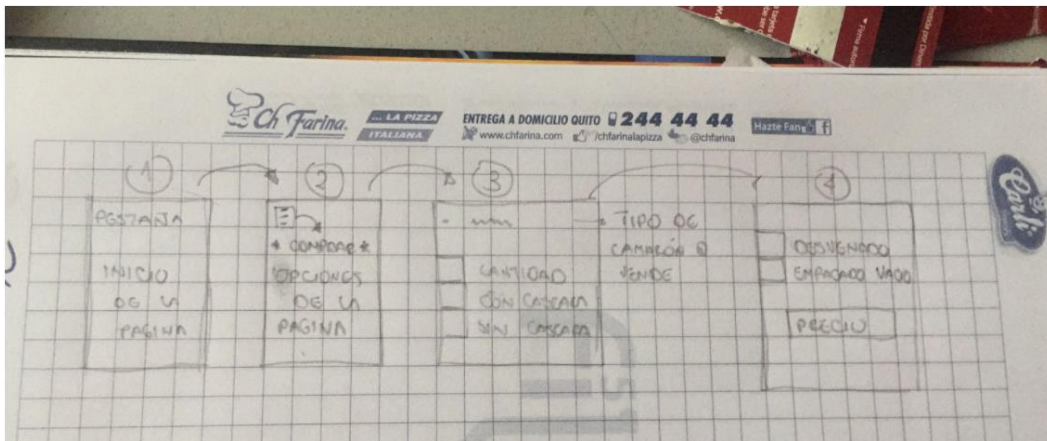 Ch Farina.
... LA PIZZA
ITALIANA
ENTREGA A DOMICILIO QUITO 244 44 44
www.chfarina.com /chfarinalapizza @chfarina
Hazte Fan
Carli
1
PESTAÑA
INICIO
DE LA
PAGINA
2
* COMPRAR *
OPCIONES
DE LA
PAGINA
3
TIPO DE
CAMARÓN Q
VENDE
CANTIDAD
CON CASCARA
SIN CASCARA
4
DESVENADO
EMPACADO VACIO
PRECIO